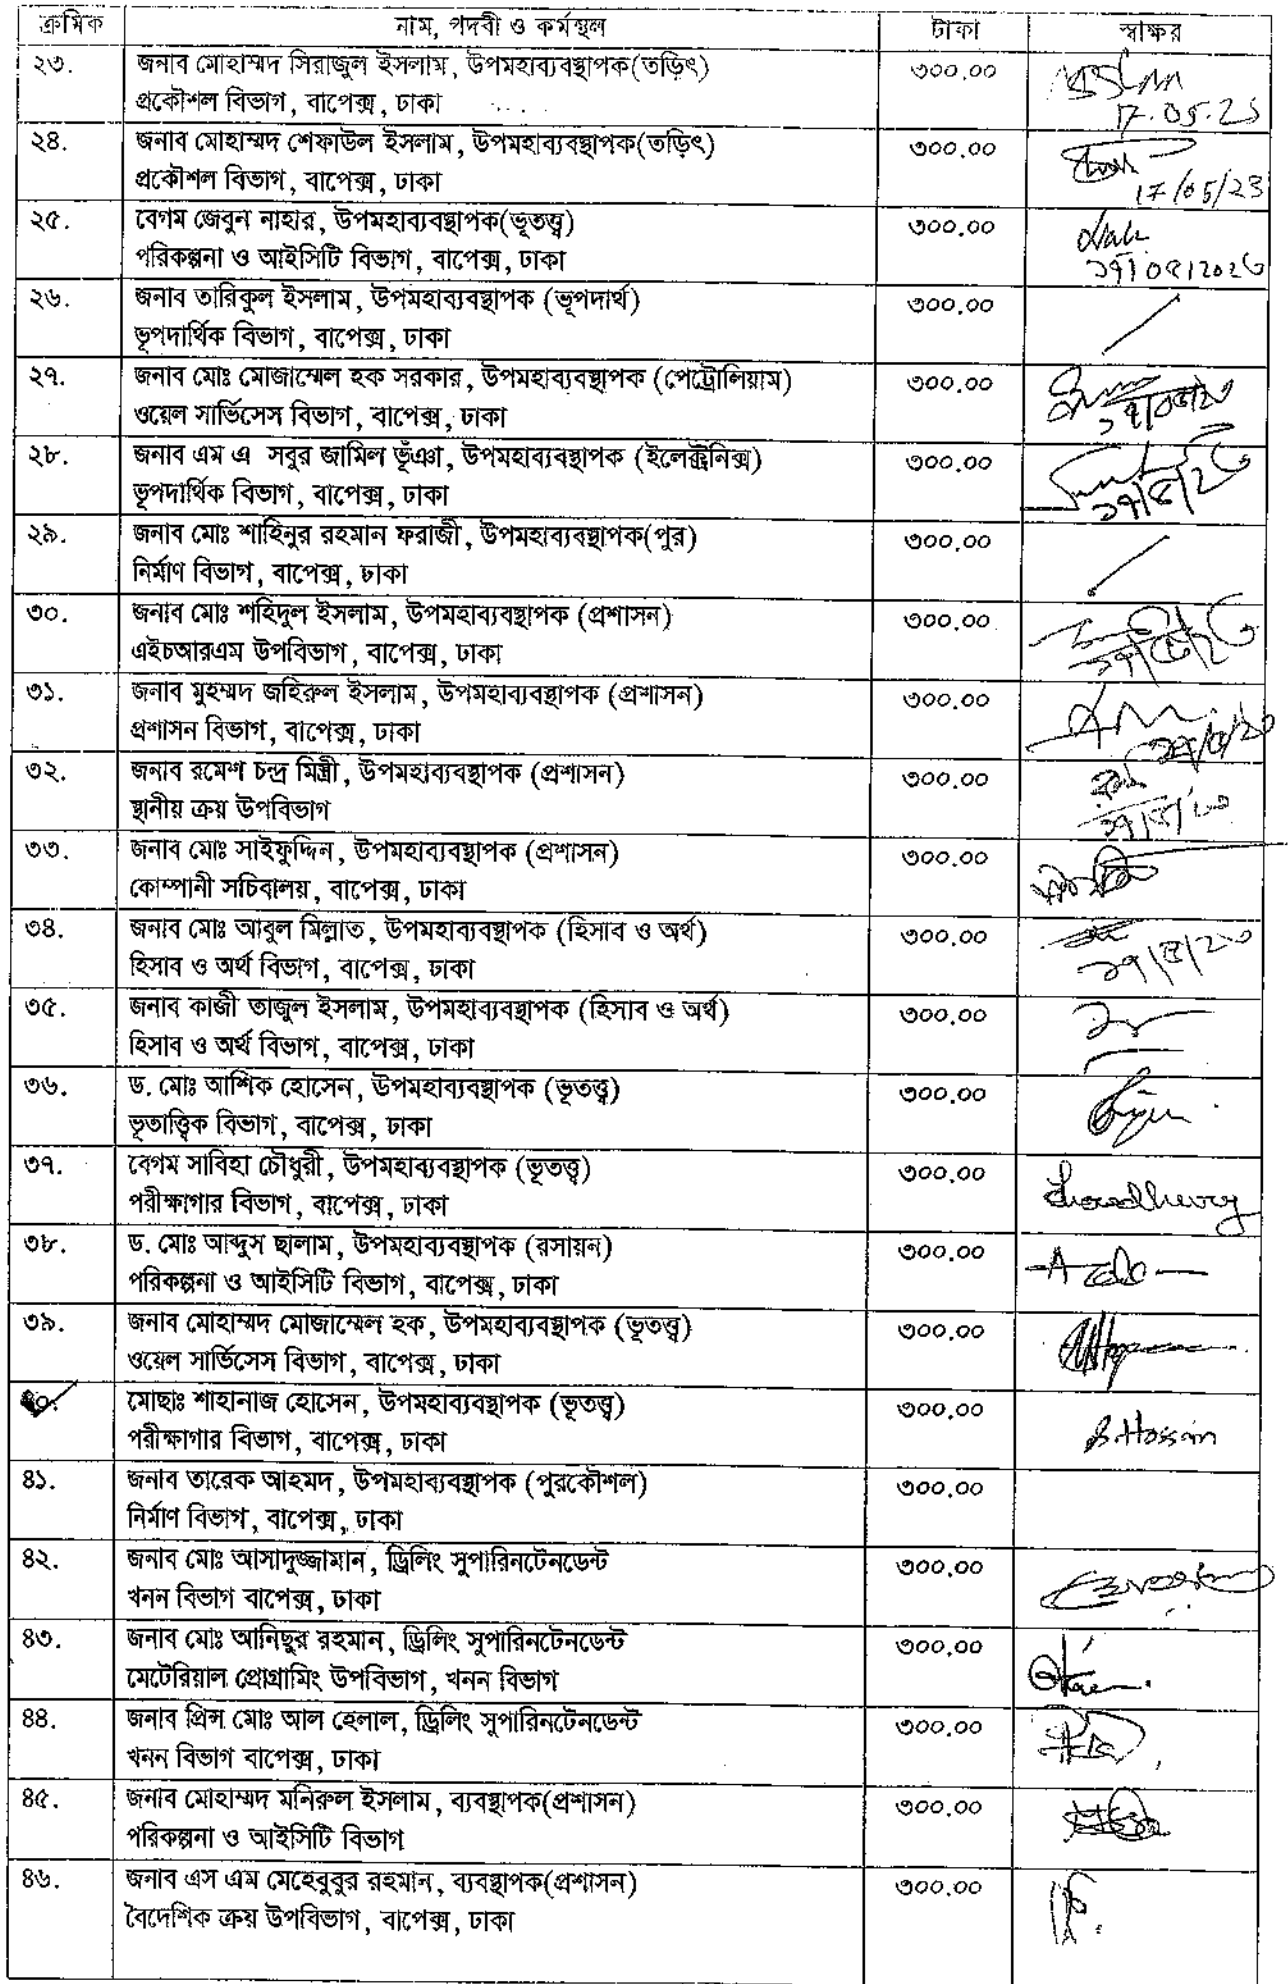 ক্রমিক নাম, পদবী ও কর্মস্থল টাকা স্বাক্ষর
২৩. জনাব মোহাম্মদ সিরাজুল ইসলাম, উপমহাব্যবস্থাপক(তড়িৎ) ৩০০.০০
প্রকৌশল বিভাগ, বাপেক্স, ঢাকা 17.05.23
২৪. জনাব মোহাম্মদ শেফাউল ইসলাম, উপমহাব্যবস্থাপক(তড়িৎ) ৩০০.০০
প্রকৌশল বিভাগ, বাপেক্স, ঢাকা 17/05/23
২৫. বেগম জেবুন নাহার, উপমহাব্যবস্থাপক(ভূতত্ত্ব) ৩০০.০০
পরিকল্পনা ও আইসিটি বিভাগ, বাপেক্স, ঢাকা
২৬. জনাব তারিকুল ইসলাম, উপমহাব্যবস্থাপক (ভূপদার্থ) ৩০০.০০
ভূপদার্থিক বিভাগ, বাপেক্স, ঢাকা
২৭. জনাব মোঃ মোজাম্মেল হক সরকার, উপমহাব্যবস্থাপক (পেট্রোলিয়াম) ৩০০.০০
ওয়েল সার্ভিসেস বিভাগ, বাপেক্স, ঢাকা
২৮. জনাব এম এ সবুর জামিল ভূঁঞা, উপমহাব্যবস্থাপক (ইলেক্ট্রনিক্স) ৩০০.০০
ভূপদার্থিক বিভাগ, বাপেক্স, ঢাকা ১৭/৫/২৩
২৯. জনাব মোঃ শাহিনুর রহমান ফরাজী, উপমহাব্যবস্থাপক(পুর) ৩০০.০০
নির্মাণ বিভাগ, বাপেক্স, ঢাকা
৩০. জনাব মোঃ শহিদুল ইসলাম, উপমহাব্যবস্থাপক (প্রশাসন) ৩০০.০০
এইচআরএম উপবিভাগ, বাপেক্স, ঢাকা ১৭/৫/২৩
৩১. জনাব মুহম্মদ জহিরুল ইসলাম, উপমহাব্যবস্থাপক (প্রশাসন) ৩০০.০০
প্রশাসন বিভাগ, বাপেক্স, ঢাকা ১৭/৫/২৩
৩২. জনাব রমেশ চন্দ্র মিস্ত্রী, উপমহাব্যবস্থাপক (প্রশাসন) ৩০০.০০
স্থানীয় ক্রয় উপবিভাগ ১৭/৫/২৩
৩৩. জনাব মোঃ সাইফুদ্দিন, উপমহাব্যবস্থাপক (প্রশাসন) ৩০০.০০
কোম্পানী সচিবালয়, বাপেক্স, ঢাকা
৩৪. জনাব মোঃ আবুল মিল্লাত, উপমহাব্যবস্থাপক (হিসাব ও অর্থ) ৩০০.০০
হিসাব ও অর্থ বিভাগ, বাপেক্স, ঢাকা ১৭/৫/২৩
৩৫. জনাব কাজী তাজুল ইসলাম, উপমহাব্যবস্থাপক (হিসাব ও অর্থ) ৩০০.০০
হিসাব ও অর্থ বিভাগ, বাপেক্স, ঢাকা
৩৬. ড. মোঃ আশিক হোসেন, উপমহাব্যবস্থাপক (ভূতত্ত্ব) ৩০০.০০
ভূতাত্ত্বিক বিভাগ, বাপেক্স, ঢাকা
৩৭. বেগম সাবিহা চৌধুরী, উপমহাব্যবস্থাপক (ভূতত্ত্ব) ৩০০.০০
পরীক্ষাগার বিভাগ, বাপেক্স, ঢাকা Chowdhury
৩৮. ড. মোঃ আব্দুস ছালাম, উপমহাব্যবস্থাপক (রসায়ন) ৩০০.০০
পরিকল্পনা ও আইসিটি বিভাগ, বাপেক্স, ঢাকা
৩৯. জনাব মোহাম্মদ মোজাম্মেল হক, উপমহাব্যবস্থাপক (ভূতত্ত্ব) ৩০০.০০
ওয়েল সার্ভিসেস বিভাগ, বাপেক্স, ঢাকা
৪০. মোছাঃ শাহানাজ হোসেন, উপমহাব্যবস্থাপক (ভূতত্ত্ব) ৩০০.০০
পরীক্ষাগার বিভাগ, বাপেক্স, ঢাকা S.Hossain
৪১. জনাব তারেক আহমদ, উপমহাব্যবস্থাপক (পুরকৌশল) ৩০০.০০
নির্মাণ বিভাগ, বাপেক্স, ঢাকা
৪২. জনাব মোঃ আসাদুজ্জামান, ড্রিলিং সুপারিনটেনডেন্ট ৩০০.০০
খনন বিভাগ বাপেক্স, ঢাকা
৪৩. জনাব মোঃ আনিছুর রহমান, ড্রিলিং সুপারিনটেনডেন্ট ৩০০.০০
মেটেরিয়াল প্রোগ্রামিং উপবিভাগ, খনন বিভাগ
৪৪. জনাব প্রিন্স মোঃ আল হেলাল, ড্রিলিং সুপারিনটেনডেন্ট ৩০০.০০
খনন বিভাগ বাপেক্স, ঢাকা
৪৫. জনাব মোহাম্মদ মনিরুল ইসলাম, ব্যবস্থাপক(প্রশাসন) ৩০০.০০
পরিকল্পনা ও আইসিটি বিভাগ
৪৬. জনাব এস এম মেহেবুবুর রহমান, ব্যবস্থাপক(প্রশাসন) ৩০০.০০
বৈদেশিক ক্রয় উপবিভাগ, বাপেক্স, ঢাকা